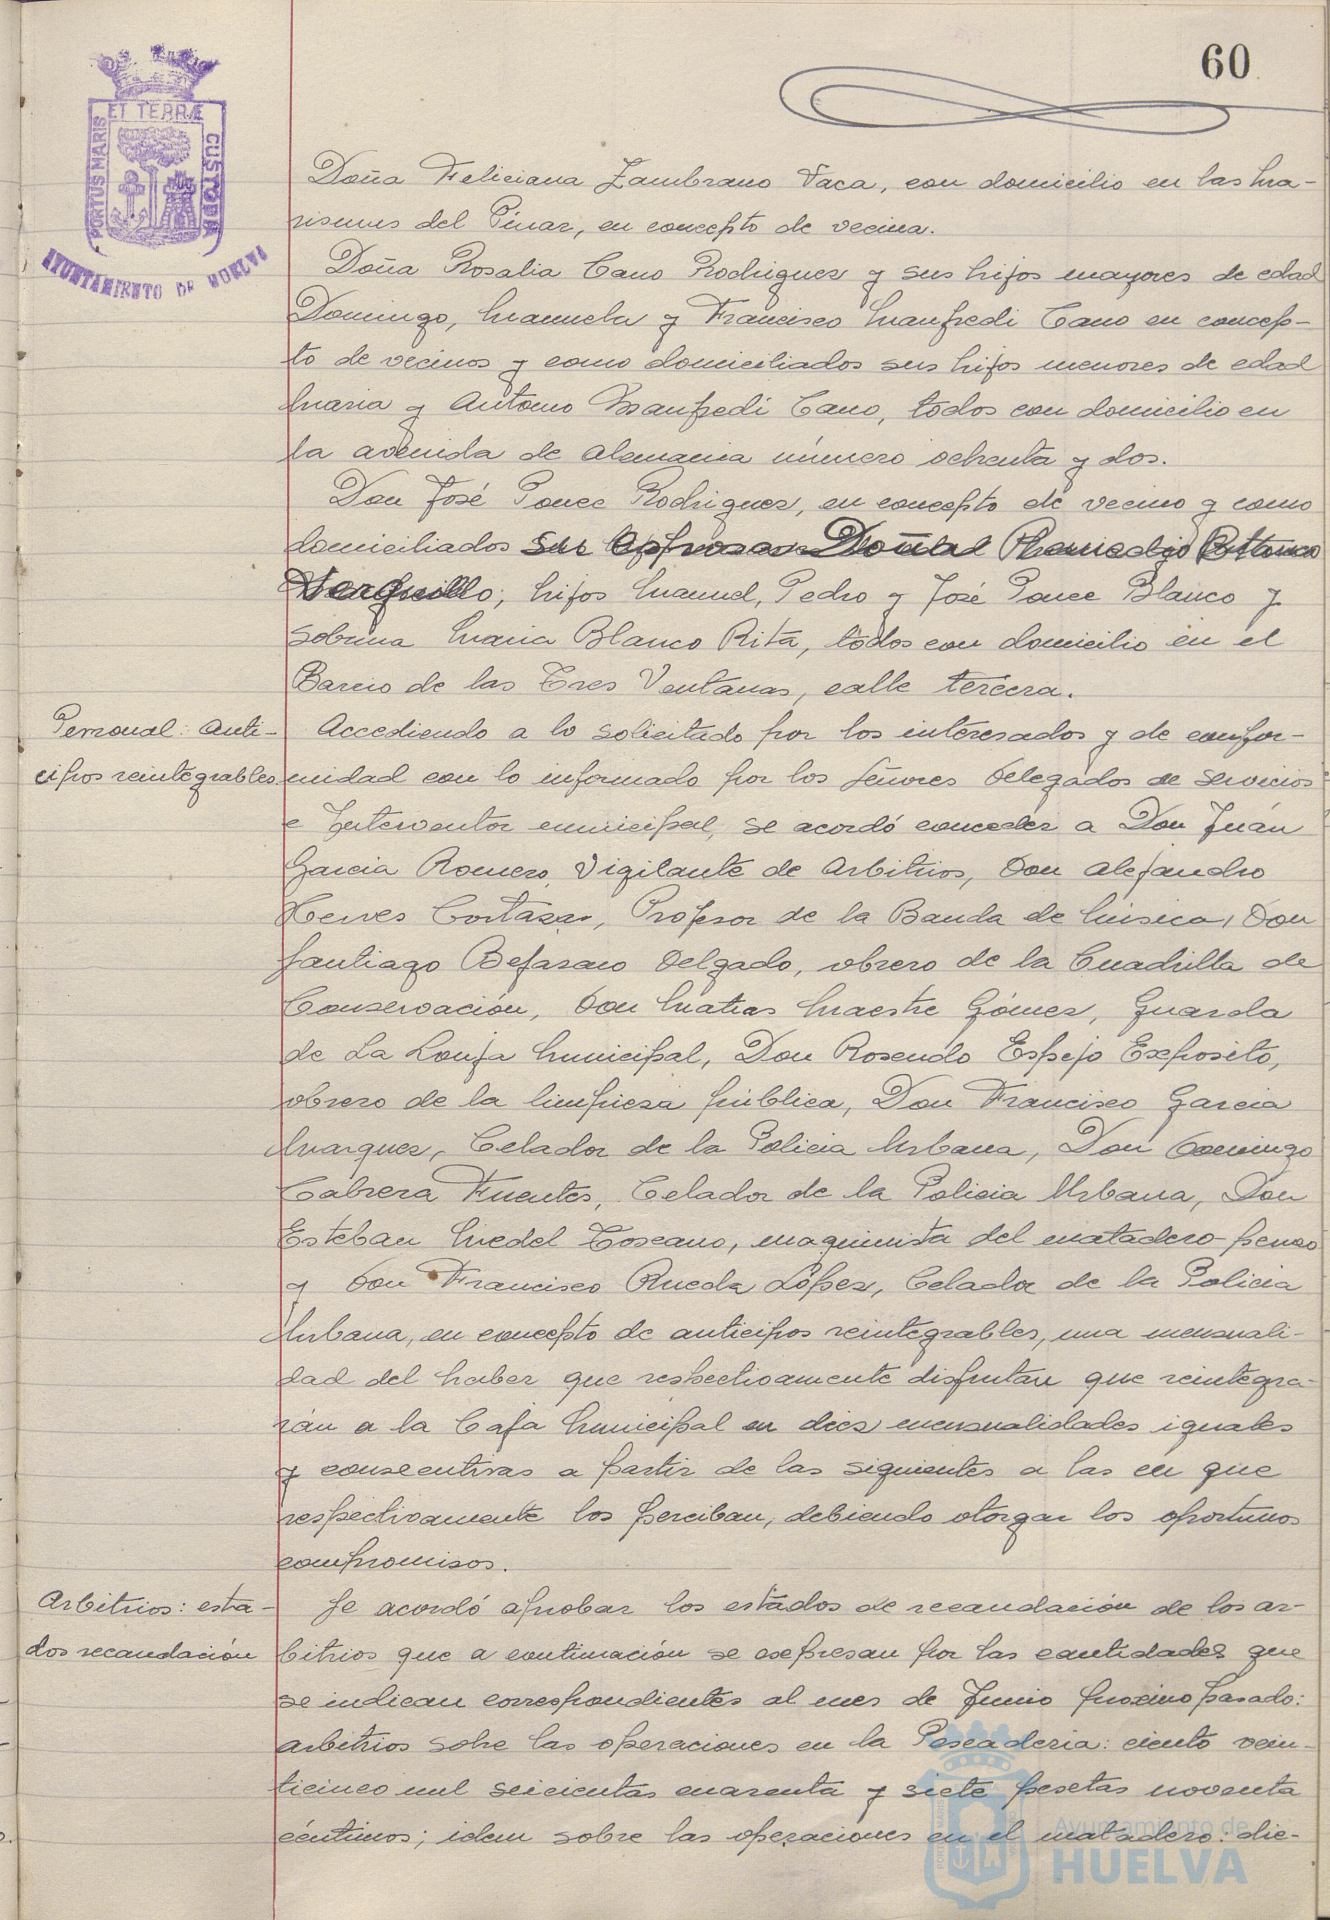 60
PORTUS MARIS ET TERRÆ CUSTODIA
AYUNTAMIENTO DE HUELVA
Doña Feliciana Zambrano Vaca, con domicilio en las Ma-
rismas del Pinar, en concepto de vecina.
Doña Rosalia Cano Rodriguez y sus hijos mayores de edad
Domingo, Manuela y Francisco Manfredi Cano en concep-
to de vecinos y como domiciliados sus hijos menores de edad
Maria y Antonio Manfredi Cano, todos con domicilio en
la avenida de Alemania número ochenta y dos.
Don José Ponce Rodriguez, en concepto de vecino y como
domiciliados su esposa Doña Remedio Blanco
hijos Manuel, Pedro y José Ponce Blanco y
sobrina Maria Blanco Rita, todos con domicilio en el
Barrio de las Tres Ventanas, calle tercera.
Personal: Anti-
cipos reintegrables.
Accediendo a lo solicitado por los interesados y de confor-
midad con lo informado por los Señores Delegados de Servicios
e Interventor municipal, se acordó conceder a Don Juán
Garcia Romero, Vigilante de Arbitrios, Don Alejandro
Herves Cortázar, Profesor de la Banda de Música, Don
Santiago Bejarano Delgado, obrero de la Cuadrilla de
Conservación, Don Matias Maestre Gómez, Guarda
de La Lonja Municipal, Don Rosendo Espejo Exposito,
obrero de la limpieza pública, Don Francisco Garcia
Marquez, Celador de la Policia Urbana, Don Domingo
Cabrera Fuentes, Celador de la Policia Urbana, Don
Esteban Medel Toscano, maquinista del matadero
y Don Francisco Rueda López, Celador de la Policia
Urbana, en concepto de anticipos reintegrables, una mensuali-
dad del haber que respectivamente disfrutan que reintegra-
rán a la Caja Municipal en diez mensualidades iguales
y consecutivas a partir de las siguientes a las en que
respectivamente los perciban, debiendo otorgar los oportunos
compromisos.
Arbitrios: esta-
dos recaudación
Se acordó aprobar los estados de recaudación de los ar-
bitrios que a continuación se expresan por las cantidades que
se indican correspondientes al mes de Junio proximo pasado:
arbitrios sobre las operaciones en la Pescaderia: ciento vein-
ticinco mil seicientas cuarenta y siete pesetas noventa
céntimos; idem sobre las operaciones en el matadero: die-
Ayuntamiento de
HUELVA